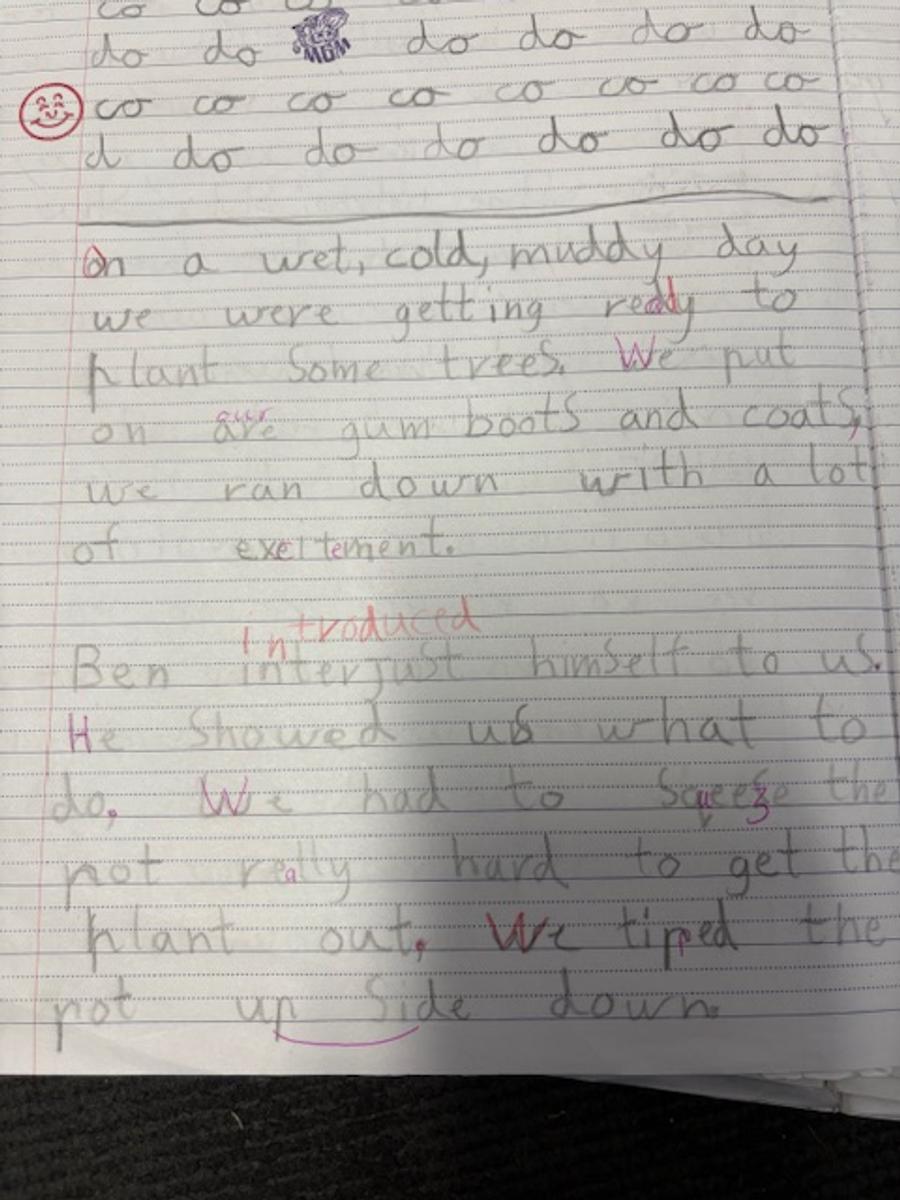 co co co
do do MGM do do do do
co co co co co co co co
d do do do do do do
On a wet, cold, muddy day
we were getting ready to
plant some trees. We put
our
on are gum boots and coats,
we ran down with a lot
of exeitement.
introduced
Ben interjust himself to us.
He showed us what to
do. We had to squeeze the
pot really hard to get the
plant out. We tipped the
pot up side down.